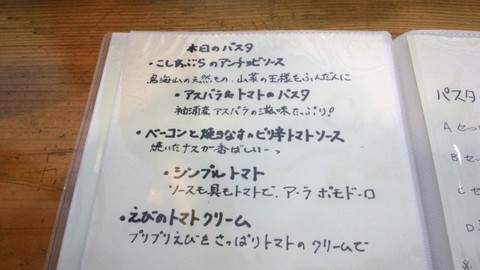 本日のパスタ
・こしあぶらのアンチョビソース
鳥海山の天然もの、山菜の王様をふんだんに
・アスパラ&トマトのパスタ
袖浦産アスパラの滋味たっぷり!
・ベーコンと焼きなすのピリ辛トマトソース
焼いたナスが香ばしいーっ
・シンプルトマト
ソースも具もトマトで、ア・ラ ポモドーロ
・えびのトマトクリーム
プリプリえびをさっぱりトマトのクリームで
パスタ
Aセッ
Bセッ
Cセ
D